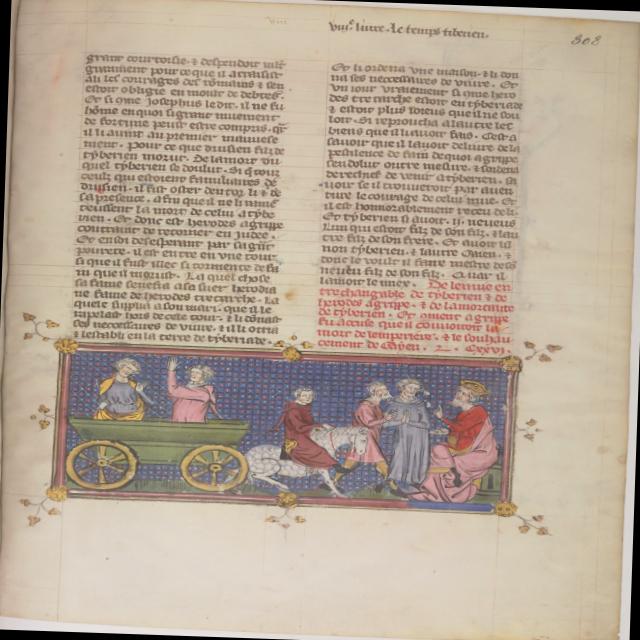 viiie livre. Le temps tiberien.
308
grant courtoisie. et despendoit mlt
graument pour ce que il atraisist
a li les courages des romains et sen
estoit obligie en mout de debtes.
Et si que Josephus le dit. il ne fu
home en quoi si grant muement
de fortune peust estre compris. qr
il li avint au premier mauvese
ment. Pour ce que drusien filz de
tyberien morut. De la mort du
quel tyberien se doulut. Si q touz
ceulz qui estoient familiaires de
drusien. il fist oster deu roy. et de
sa presence. a fin que il ne li ramē
teussent la mort de celui a tybe
rien. Et donc est herodes agrippe
contraint de retorner en Judee.
Et ensi desesperant par sa grāt
povrete. il est entre en une tour
si que il fust illec si tormente de fa
im que il morust. La quel chose
sa fame senefia a sa suer herodia
ne fame de herodes tetrarche. La
quele supplia a son mari. que il le
rapelast hors de cele tour. et li donast
ses necessaires de vivre. et il li otria
et lestabli en la terre de tyberiade.
Et li ordena une maison. et li don
na ses necessaires de vivre. Et
un jour vraiement si que hero
des tetrarche estoit en tyberiade
et estoit plus ioieus que il ne sou
loit. Si reproucha a lautre les
biens que il li avoit fais. Cest a
savoir que il lavoit delivre de la
pestilence de faim de quoi agrippe
sen dolut outre mesure. et sordena
derechief de venir a tyberien. sa
voir se il trouveroit par aven
ture le courage de celui mue. Et
il est honnorablement receu de li.
Et tyberien si avoit .ii. neveus
Lun qui estoit filz de son filz. et lau
tre filz de son frere. Et avoit la
non tyberien. et lautre Gaien. et
donc le voult il faire mestre de son
neveu filz de son filz. Quar il
lamoit le miex. De lenuie en
trechangable de tyberien et de
herodes agrippe. et de lamonicite
de tyberien. Et coment agrippe
fu accuse que il convoitoit la
mort de lempeliere. et le souhau
cement de Gayen. 2. Cxxvi.